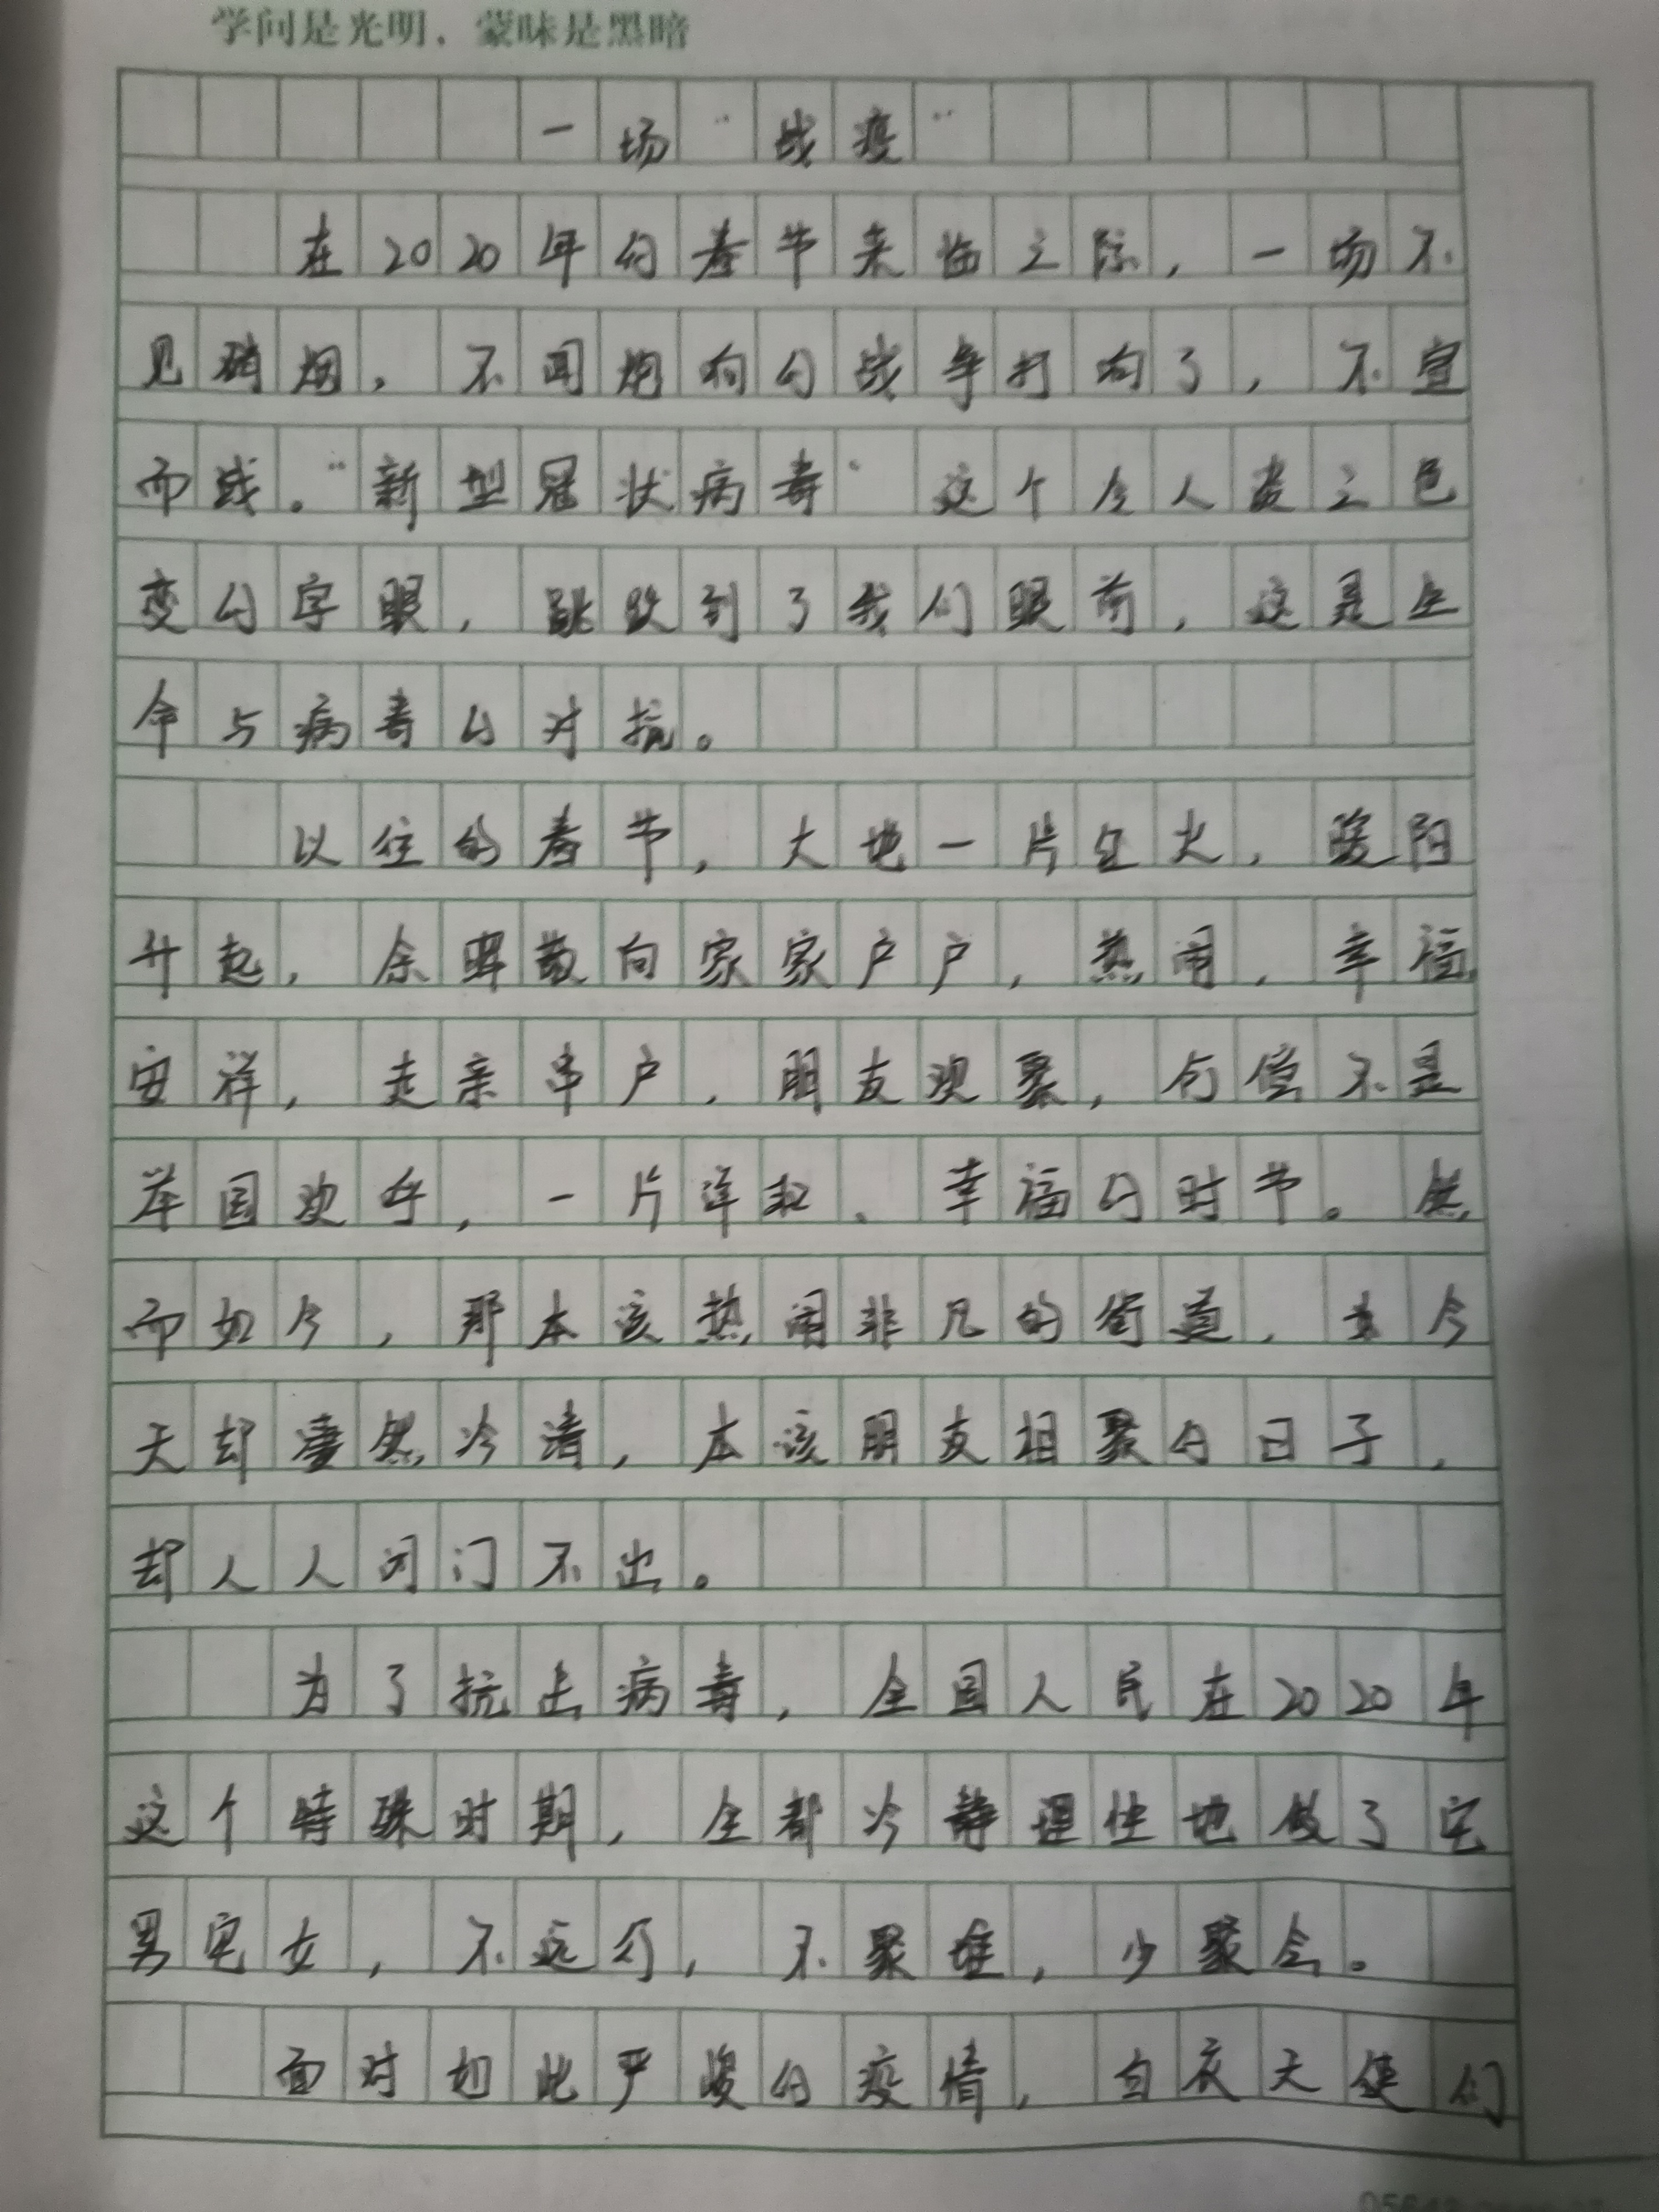 学问是光明，蒙昧是黑暗
一场“战疫”
在2020年的春节来临之际，一场不
见硝烟，不闻炮响的战争打响了，不宣
而战。“新型冠状病毒”这个令人袭之色
变的字眼，跳跃到了我们眼前，这是生
命与病毒的对抗。
以往的春节，大地一片红火，暖阳
升起，余晖散向家家户户，热闹，幸福，
安祥，走亲串户，朋友欢聚，何尝不是
举国欢乎，一片祥和、幸福的时节。然
而如今，那本该热闹非凡的街道，去今
天却凄然冷清，本该朋友相聚的日子，
却人人闭门不出。
为了抗击病毒，全国人民在2020年
这个特殊时期，全都冷静理性地做了宅
男宅女，不远行，不聚堆，少聚会。
面对如此严峻的疫情，白衣天使们